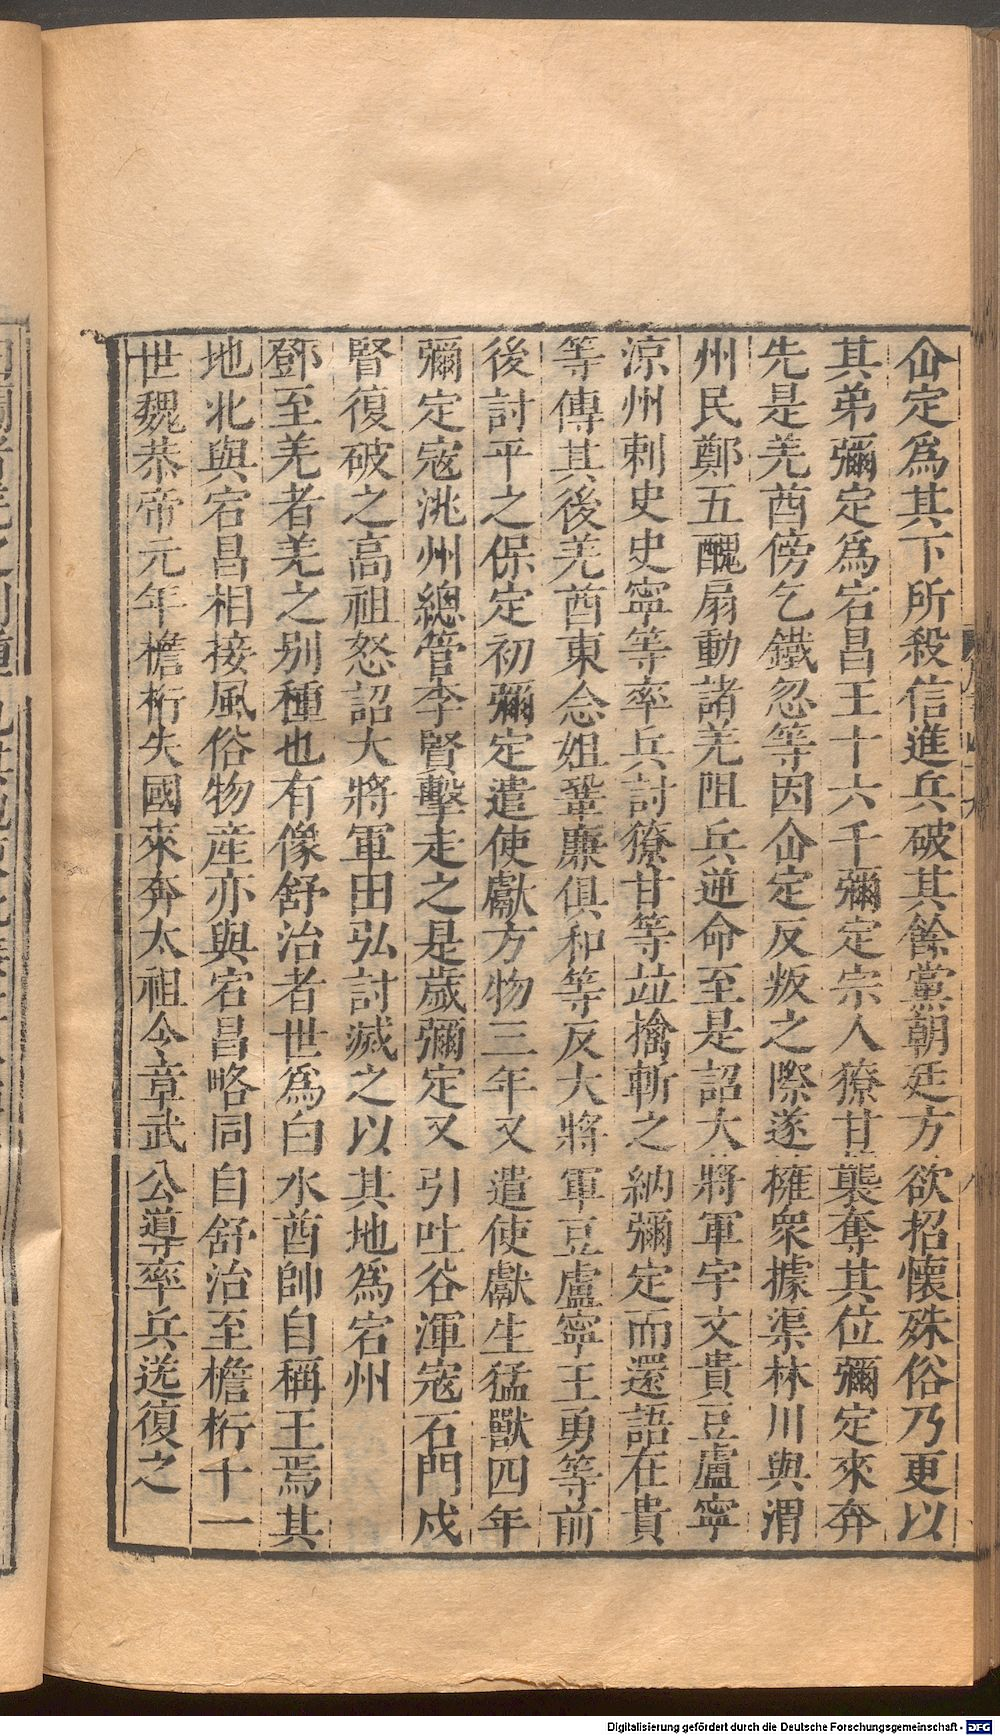 仚定爲其下所殺信進兵破其餘黨朝廷方欲招懷殊俗乃更以
其弟彌定爲宕昌王十六千彌定宗人獠甘襲奪其位彌定來奔
先是羌酋傍乞鐵忽等因仚定反叛之際遂擁衆據渠林川與渭
州民鄭五醜扇動諸羌阻兵逆命至是詔大將軍宇文貴豆盧寧
涼州刺史史寧等率兵討獠甘等竝擒斬之納彌定而還語在貴
等傳其後羌酋東念姐鞏廉俱和等反大將軍豆盧寧王勇等前
後討平之保定初彌定遣使獻方物三年又遣使獻生猛獸四年
彌定寇洮州總管李賢擊走之是歲彌定又引吐谷渾寇石門戍
賢復破之高祖怒詔大將軍田弘討滅之以其地爲宕州
鄧至羌者羌之别種也有像舒治者世爲白水酋帥自稱王焉其
地北與宕昌相接風俗物産亦與宕昌略同自舒治至檐桁十一
世魏恭帝元年檐桁失國來奔太祖令章武公導率兵送復之
Digitalisierung gefördert durch die Deutsche Forschungsgemeinschaft - DFG